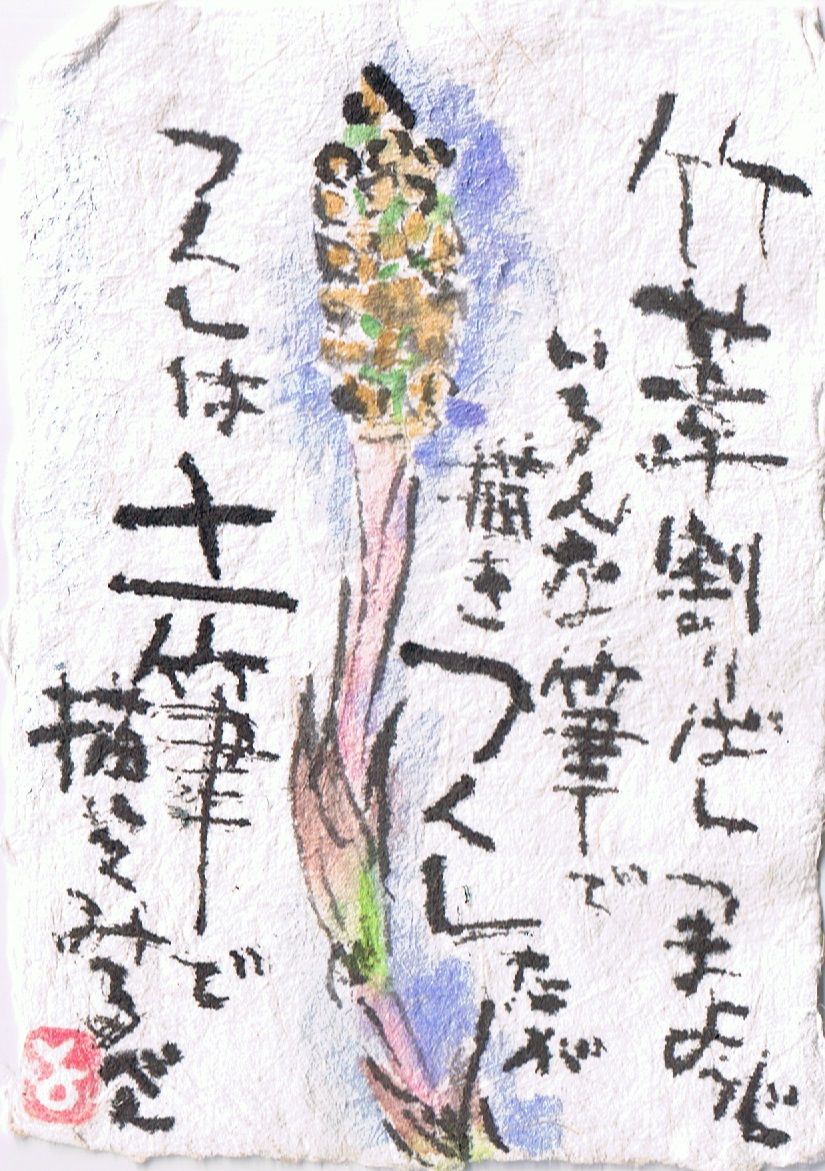 竹草割りばしつまようじ
いろんな筆で
描きつくしたが
つくしは土筆で
描いてみるぞ